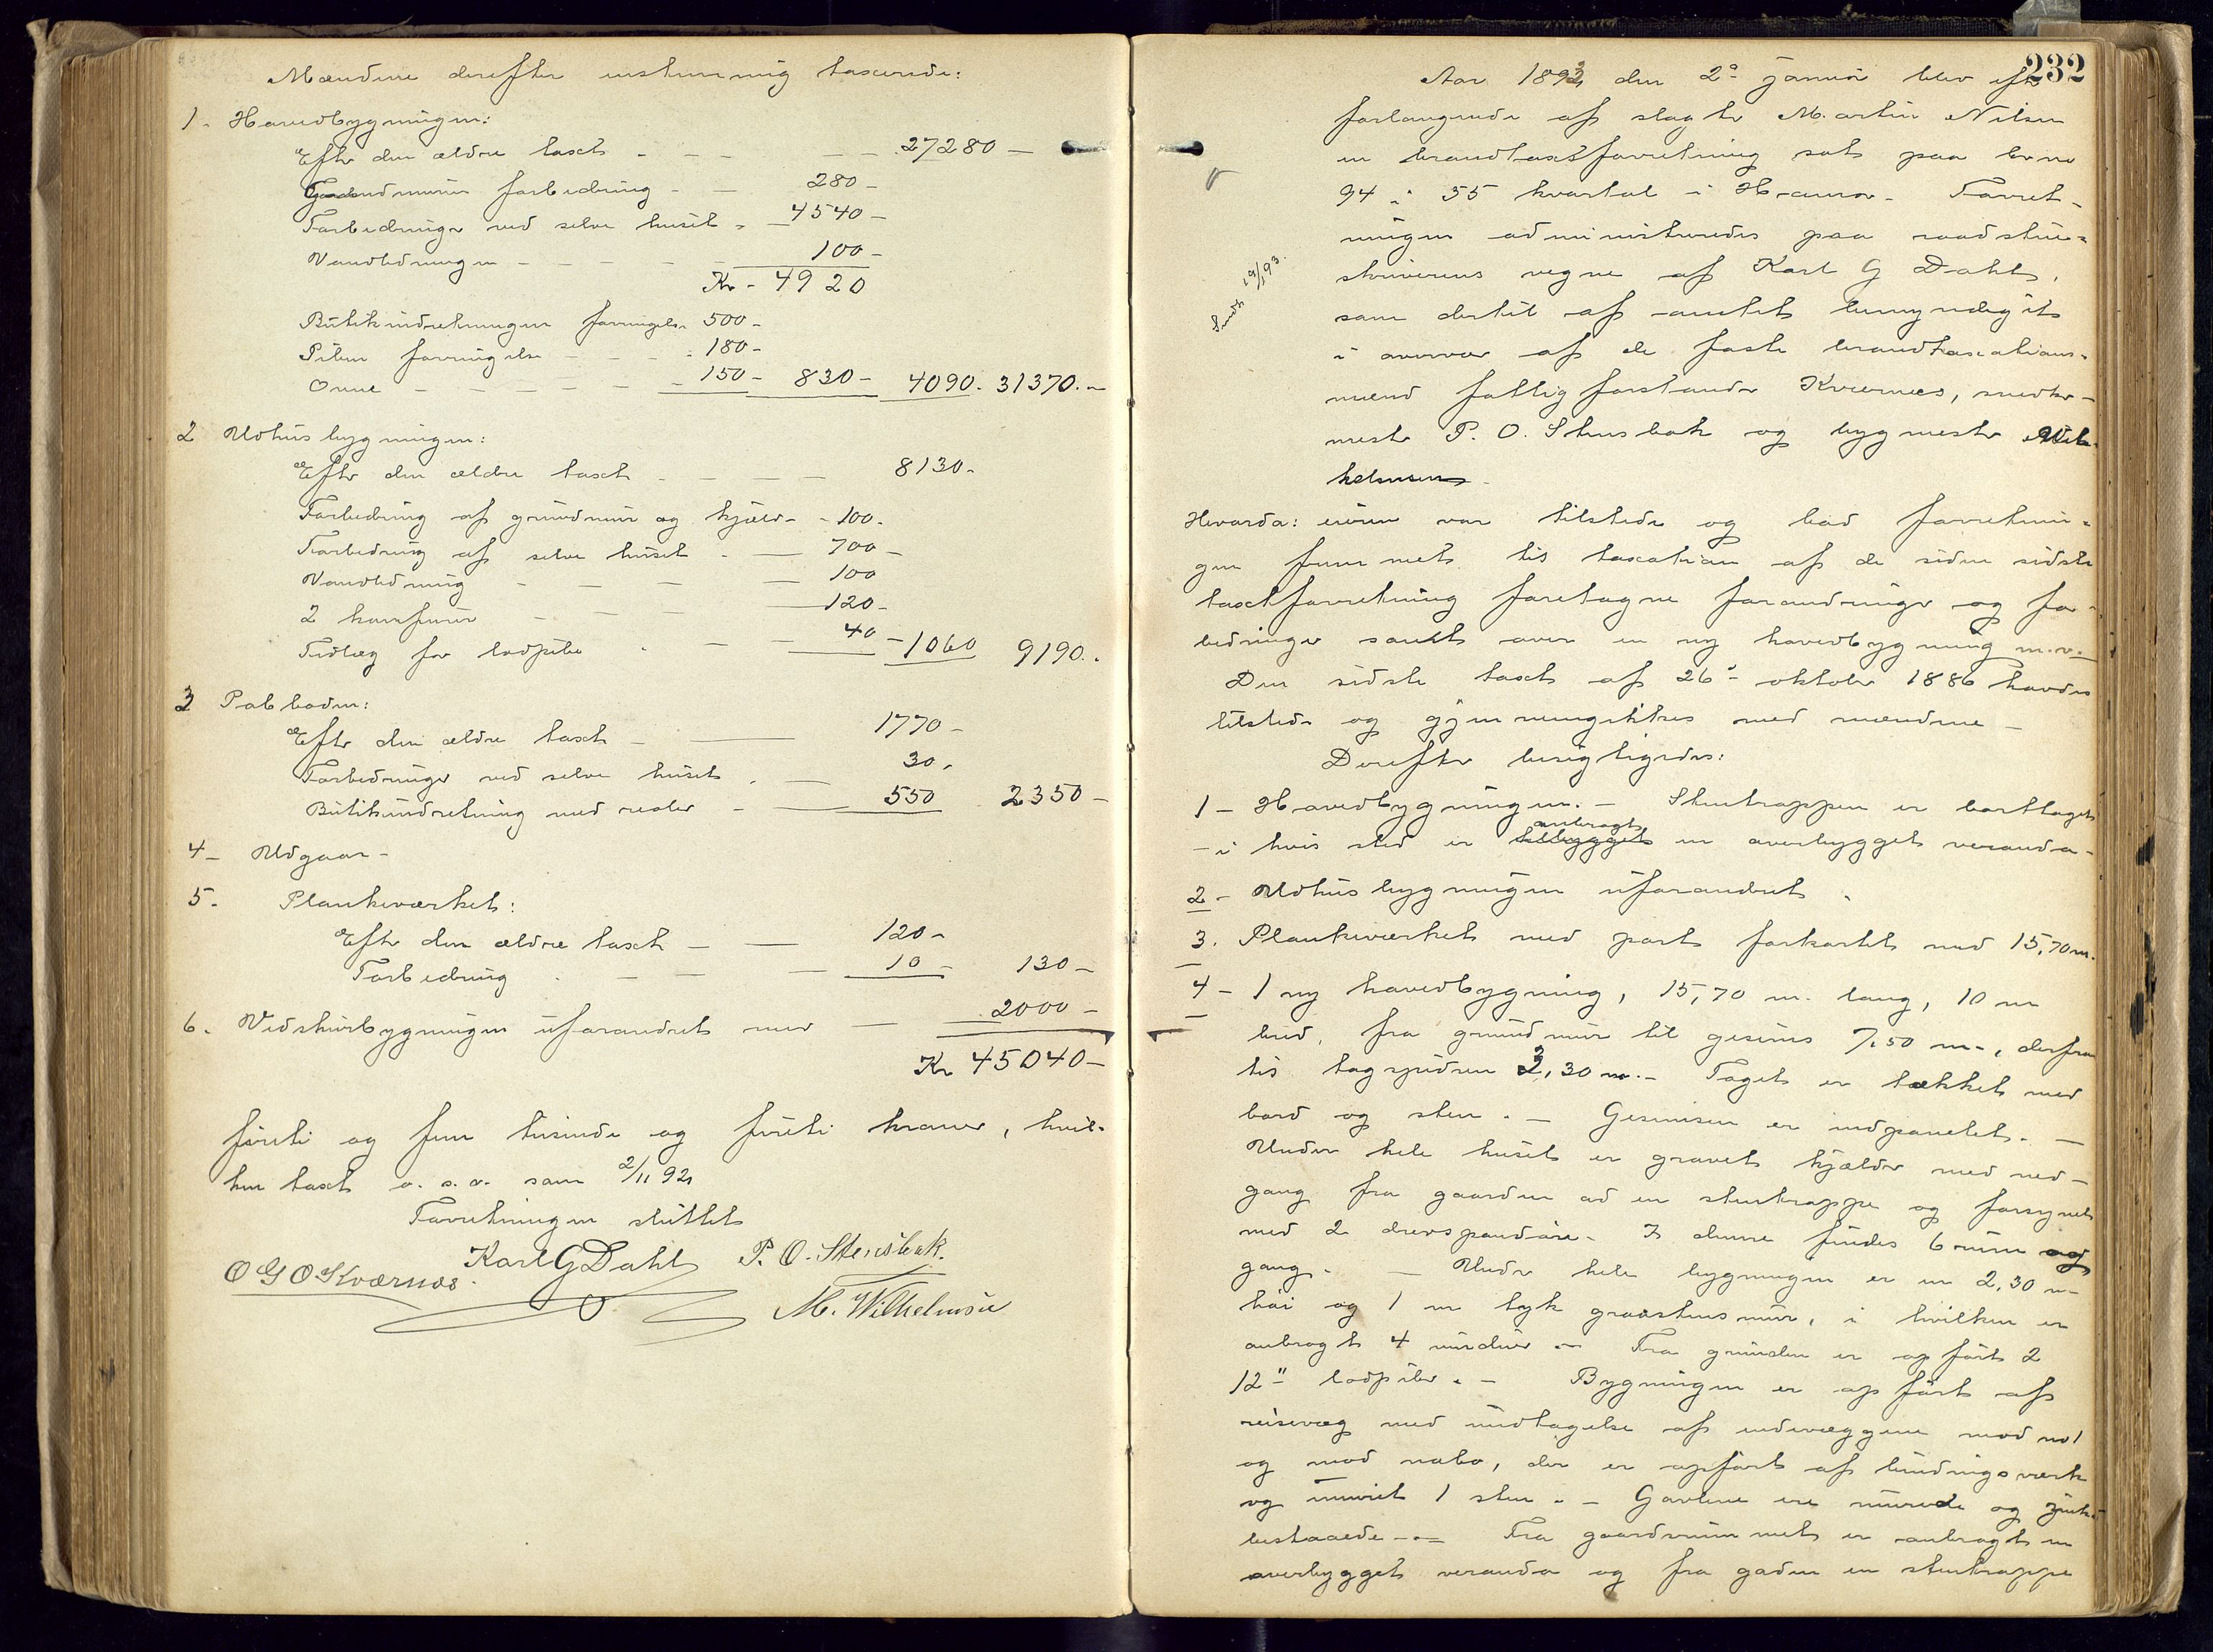 Mændene derefter enstemmig taxerede:
1. Hovedbygningen:
Efter den ældre taxt - - - - 27280 -
Grundmurens forbedring - - 280 -
Forbedringer ved selve huset - - 4540 -
Vandledningen - - - - 100 -
Kr - 4920
Butikindretningen forringelse 500 -
Piben forringelse - - - 180 -
Ovne - - - - - 150 - 830 - 4090. 31370. -
2 Udhusbygningen:
Efter den ældre taxt - - - - 8130 -
Forbedring af grundmur og kjælder - 100.
Forbedring af selve huset - - 700 -
Vandledning - - - - 100
2 komfurer - - - - 120 -
Tillæg for lodpibe - - - 40 - 1060 9190..
3 Pakboden:
Efter den ældre taxt - - 1770 -
Forbedringer ved selve huset - - 30.
Butikindretning med reoler - - 550 2350 -
4 - Udgaar -
5. Plankeværket:
Efter den ældre taxt - - 120 -
Forbedring - - - 10 - 130 -
6. Vedskurbygningen uforandret med - 2000 -
Kr 45040 -
førti og fem tusinde og førti kroner, hvil-
ken taxt o. s. v. som 2/11 92
Forretningen sluttet
Karl G Dahl P. O. Stensbak.
O G O Kværnæs.
M. Wilhelmsen
232
Aar 1893 den 2⁰ januar blev efter
forlangende af slagter Martin Nilsen
en brandtaxtforretning sat paa br no
94 i 55 kvartal i Hamar. Forret-
ningen administreredes paa raadstue-
skriverens vegne af Karl G Dahl,
som dertil af amtet bemyndiget
i overvær af de faste brandtaxations-
mænd fattigforstander Kværnæs, snedker-
mester P. O. Stensbak og bygmester Wil-
helmsen -
Sendt 19/1 93.
Hvorda: eieren var tilstede og bad forretnin-
gen fremmet til taxation af de siden sidste
taxtforretning foretagne forandringer og for-
bedringer samt over en ny hovedbygning m.v.
Den sidste taxt af 26⁰ oktober 1886 havdes
tilstede og gjennemgikkes med mændene -
Derefter besigtigedes:
1 - Hovedbygningen. - Stentrappen er borttaget
anbragt
- i hvis sted er tilbygget en overbygget veranda -
2 - Udhusbygningen uforandret .
3. Plankeværket med port forkortet med 15,70 m.
4 - 1 ny hovedbygning, 15,70 m. lang, 10 m
bred, fra grundmur til gesims 7,50 m., derfra
til tagspidsen 3,30 m. - Taget er tækket med
bord og sten. - Gesimsen er indpanelet. -
Under hele huset er gravet kjælder med ned-
gang fra gaarden ad en stentrappe og forsynet
med 2 drevspanddøre. I denne findes 6 rum og
gang. - Under hele bygningen er en 2,30 m
høi og 1 m tyk graastensmur, i hvilken er
anbragt 4 vinduer - Fra grunden er opført 2
12" lodpiber. - Bygningen er opført af
reisevæg med undtagelse af endevæggene mod no 1
og mod nabo, der er opført af bindingsværk
og muret 1 sten. - Gavlene ere murede og zink-
beslaaede - Fra gaardsrummet er anbragt en
overbygget veranda og fra gaden en stentrappe